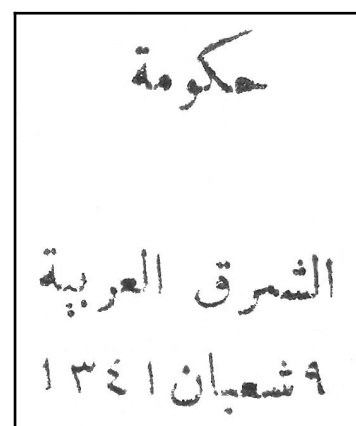 حكومة
الشرق العربية
٩ شعبان ١٣٤١